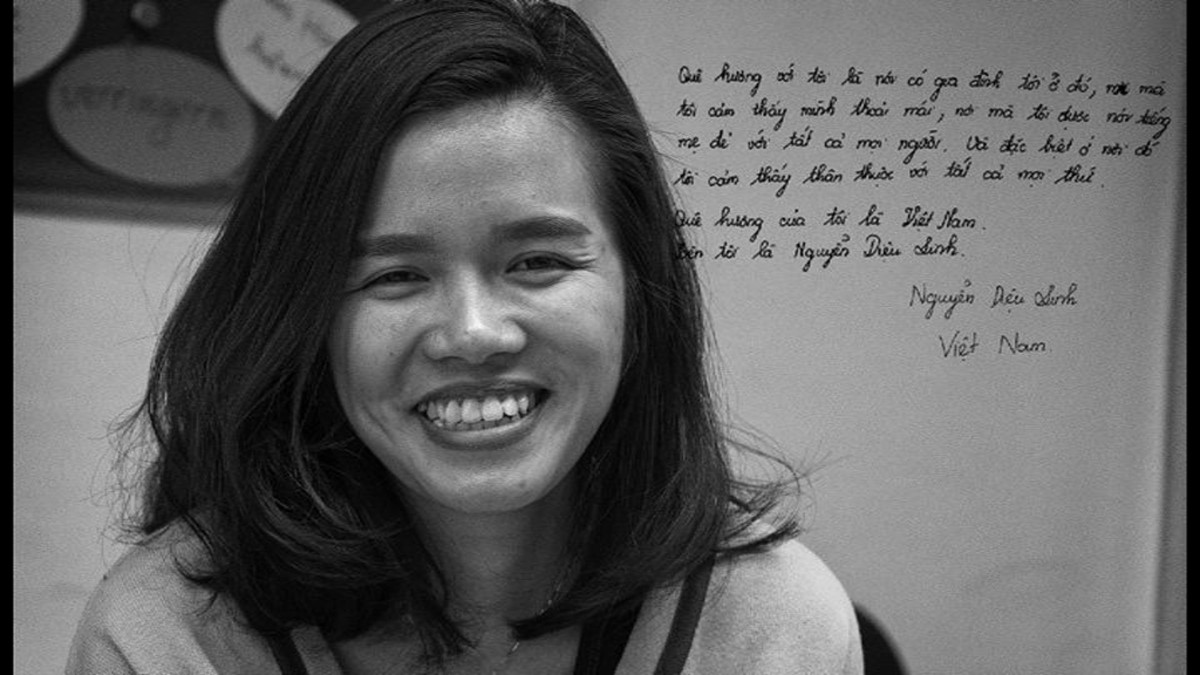 Quê hương với tôi là nơi có gia đình tôi ở đó, nơi mà
tôi cảm thấy mình thoải mái, nơi mà tôi được nói tiếng
mẹ đẻ với tất cả mọi người. Và đặc biệt ở nơi đó
tôi cảm thấy thân thuộc với tất cả mọi thứ.
Quê hương của tôi là Việt Nam.
tên tôi là Nguyễn Diệu Linh.
Nguyễn Diệu Linh
Việt Nam